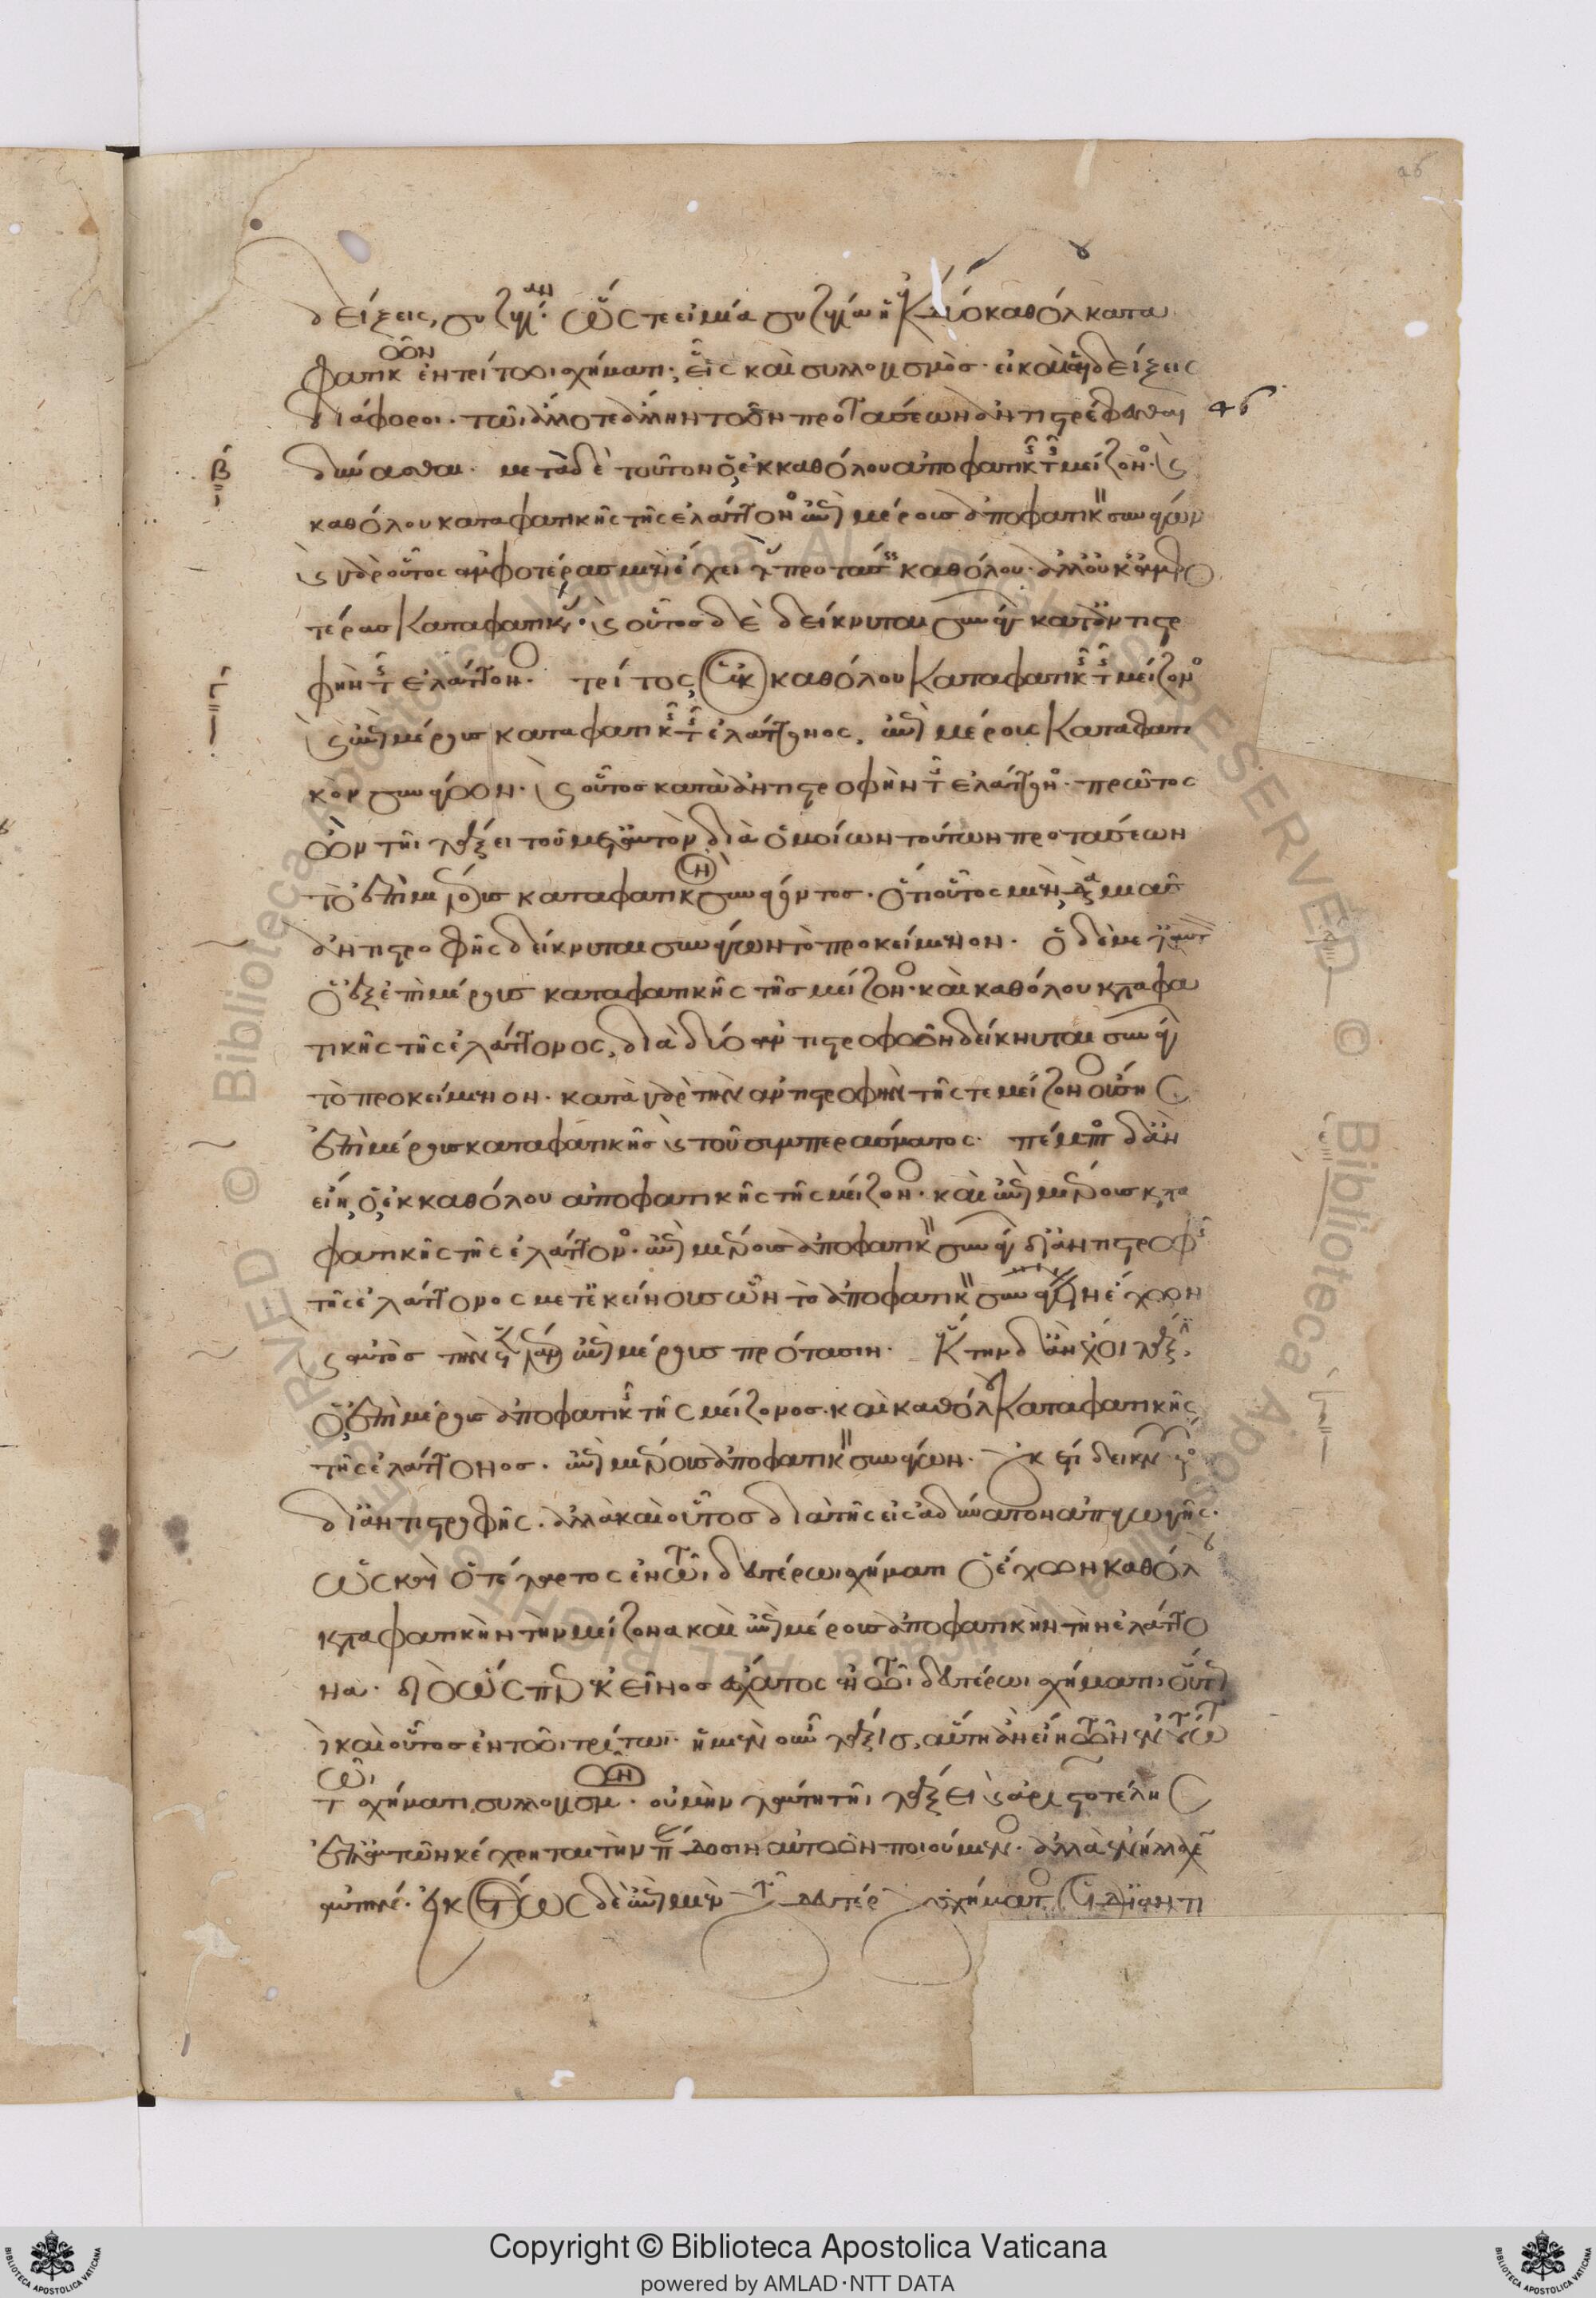 δείξεις, συζυγίαν. ὥστε εἰ μία συζυγία ἡ ἐκ δύο καθόλου κατα
φατικῶν ἐν τρίτωι σχήματι, εἷς καὶ συλλογισμός· εἰ καὶ αἱ δείξεις
διάφοροι. τῶι ἄλλοτε ἄλλην τῶν προτάσεων ἀντιστρέφεσθαι
δύνασθαι. μετὰ δὲ τοῦτον ὁ ἐκ καθόλου ἀποφατικῆς τῆς μείζονος καὶ
καθόλου καταφατικῆς τῆς ἐλάττονος ἐπὶ μέρους ἀποφατικὸν συνάγων
καὶ γὰρ οὗτος ἀμφοτέρας μὲν ἔχει τὰς προτάσεις καθόλου· ἀλλ' οὐκ ἀμφο
τέρας καταφατικάς· καὶ οὗτος δὲ δείκνυται συνάγων κατὰ ἀντιστρο
φὴν τῆς ἐλάττονος. τρίτος ὁ ἐκ καθόλου καταφατικῆς τῆς μείζονος
καὶ ἐπὶ μέρους καταφατικῆς τῆς ἐλάττονος, ἐπὶ μέρους καταφατι
κὸν συνάγων. καὶ οὗτος κατὰ ἀντιστροφὴν τῆς ἐλάττονος. πρῶτος
ὢν τῆι τάξει τοῦ μετ' αὐτὸν δι' ὁμοίων τούτωι προτάσεων
τὸ ἐπὶ μέρους καταφατικὸν συνάγοντος. ὅτι οὗτος μὲν διὰ μιᾶς
ἀντιστροφῆς δείκνυται συνάγων τὸ προκείμενον. ὁ δὲ μετ' αὐτὸν
ὁ ἐξ ἐπὶ μέρους καταφατικῆς τῆς μείζονος καὶ καθόλου καταφα
τικῆς τῆς ἐλάττονος, διὰ δύο ἀντιστροφῶν δείκνυται συνάγων
τὸ προκείμενον. κατὰ γὰρ τὴν ἀντιστροφὴν τῆς τε μείζονος οὔσης
ἐπὶ μέρους καταφατικῆς καὶ τοῦ συμπεράσματος. πέμπτος δ' ἂν
εἴη, ὁ ἐκ καθόλου ἀποφατικῆς τῆς μείζονος καὶ ἐπὶ μέρους κατα
φατικῆς τῆς ἐλάττονος ἐπὶ μέρους ἀποφατικὸν συνάγων δι' ἀντιστροφῆς
τῆς ἐλάττονος μετ' ἐκείνους ὢν τὸ ἀποφατικὸν συνάγειν ἔχων
καὶ αὐτὸς τὴν ἑτέραν ἐπὶ μέρους πρότασιν. ἕκτην δ' ἂν ἔχοι τάξιν
ὁ ἐξ ἐπὶ μέρους ἀποφατικῆς τῆς μείζονος καὶ καθόλου καταφατικῆς
τῆς ἐλάττονος ἐπὶ μέρους ἀποφατικὸν συνάγων. οὐκέτι δεικνύμενος
δι' ἀντιστροφῆς. ἀλλὰ καὶ οὗτος διὰ τῆς εἰς ἀδύνατον ἀπαγωγῆς.
ὡς καὶ ὁ τέταρτος ἐν τῶι δευτέρωι σχήματι ὁ ἔχων καθόλου
καταφατικὴν τὴν μείζονα καὶ ἐπὶ μέρους ἀποφατικὴν τὴν ἐλάττο
να. διὸ ὥσπερ κἀκεῖνος ἔσχατος ἐν τῶι δευτέρωι σχήματι, οὕτω
καὶ οὗτος ἐν τῶι τρίτωι. ἡ μὲν οὖν τάξις, αὕτη ἂν εἴη τῶν ἐν τούτω
τῶι σχήματι συλλογισμῶν. οὐ μὴν ταύτη τῆι τάξει καὶ Ἀριστοτέλης
ἐπ' αὐτῶν κέχρηται τὴν παράδοσιν αὐτῶν ποιούμενος. ἀλλὰ ἐνήλλαχε
αὐτήν. ἐκτὸς δὲ ἐπὶ μὲν τοῦ δευτέρου σχήματος τοὺς δι' ἀντι
46
β
γ